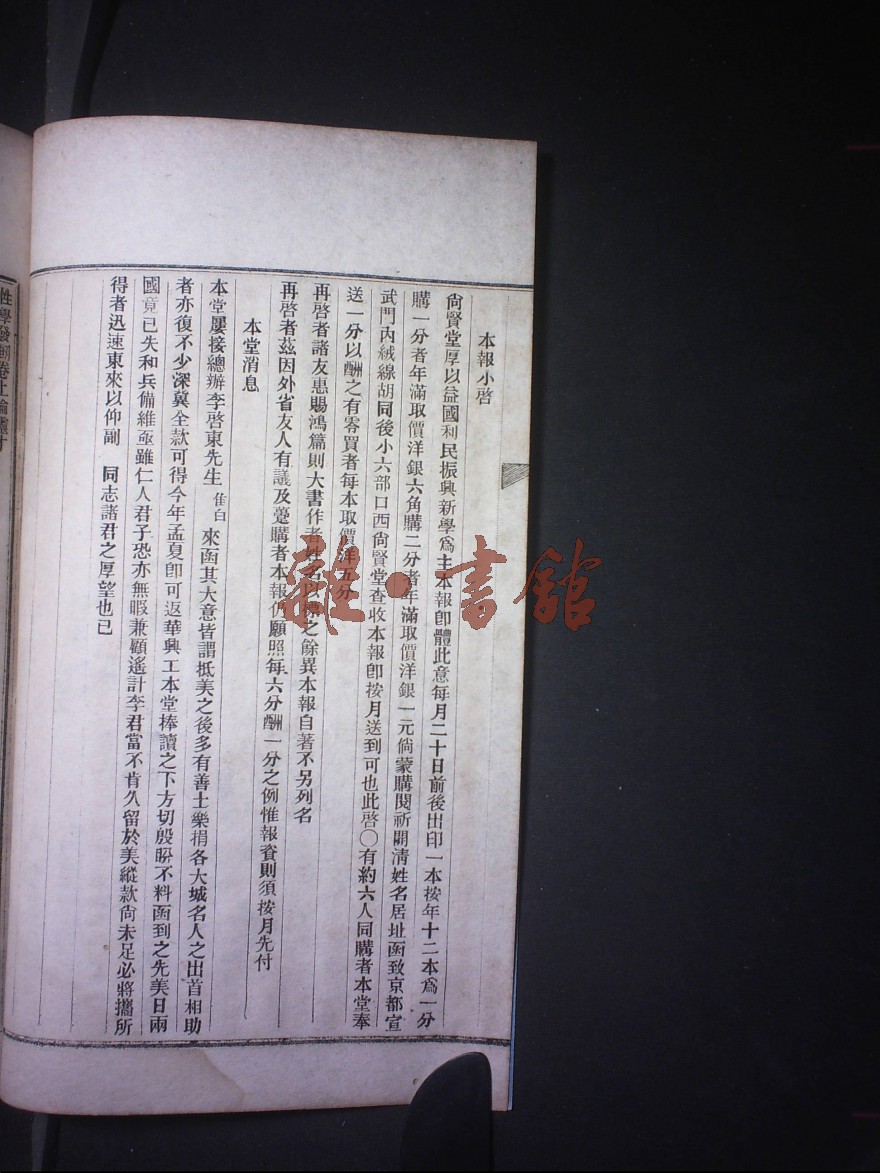 本報小啓
尙賢堂厚以益國利民振興新學爲主本報卽體此意每月二十日前後出印一本按年十二本爲一分
購一分者年滿取價洋銀六角購二分者年滿取價洋銀一元倘蒙購閱祈開淸姓名居址函致京都宣
武門內絨線胡同後小六部口西尙賢堂查收本報卽按月送到可也此啓〇有約六人同購者本堂奉
送一分以酬之有零買者每本取價洋五分
再啓者諸友惠賜鴻篇則大書作者姓名以標之餘異本報自著不另列名
再啓者茲因外省友人有議及躉購者本報仍願照每六分酬一分之例惟報資則須按月先付
本堂消息
本堂屢接總辦李啓東先生 隹白 來函其大意皆謂抵美之後多有善士樂捐各大城名人之出首相助
者亦復不少深冀全款可得今年孟夏卽可返華興工本堂捧讀之下方切殷盼不料函到之先美日兩
國竟已失和兵備維亟雖仁人君子恐亦無暇兼顧遙計李君當不肯久留於美縱款尙未足必將攜所
得者迅速東來以仰副 同志諸君之厚望也已
性學發軔卷上論靈才
雜·書館